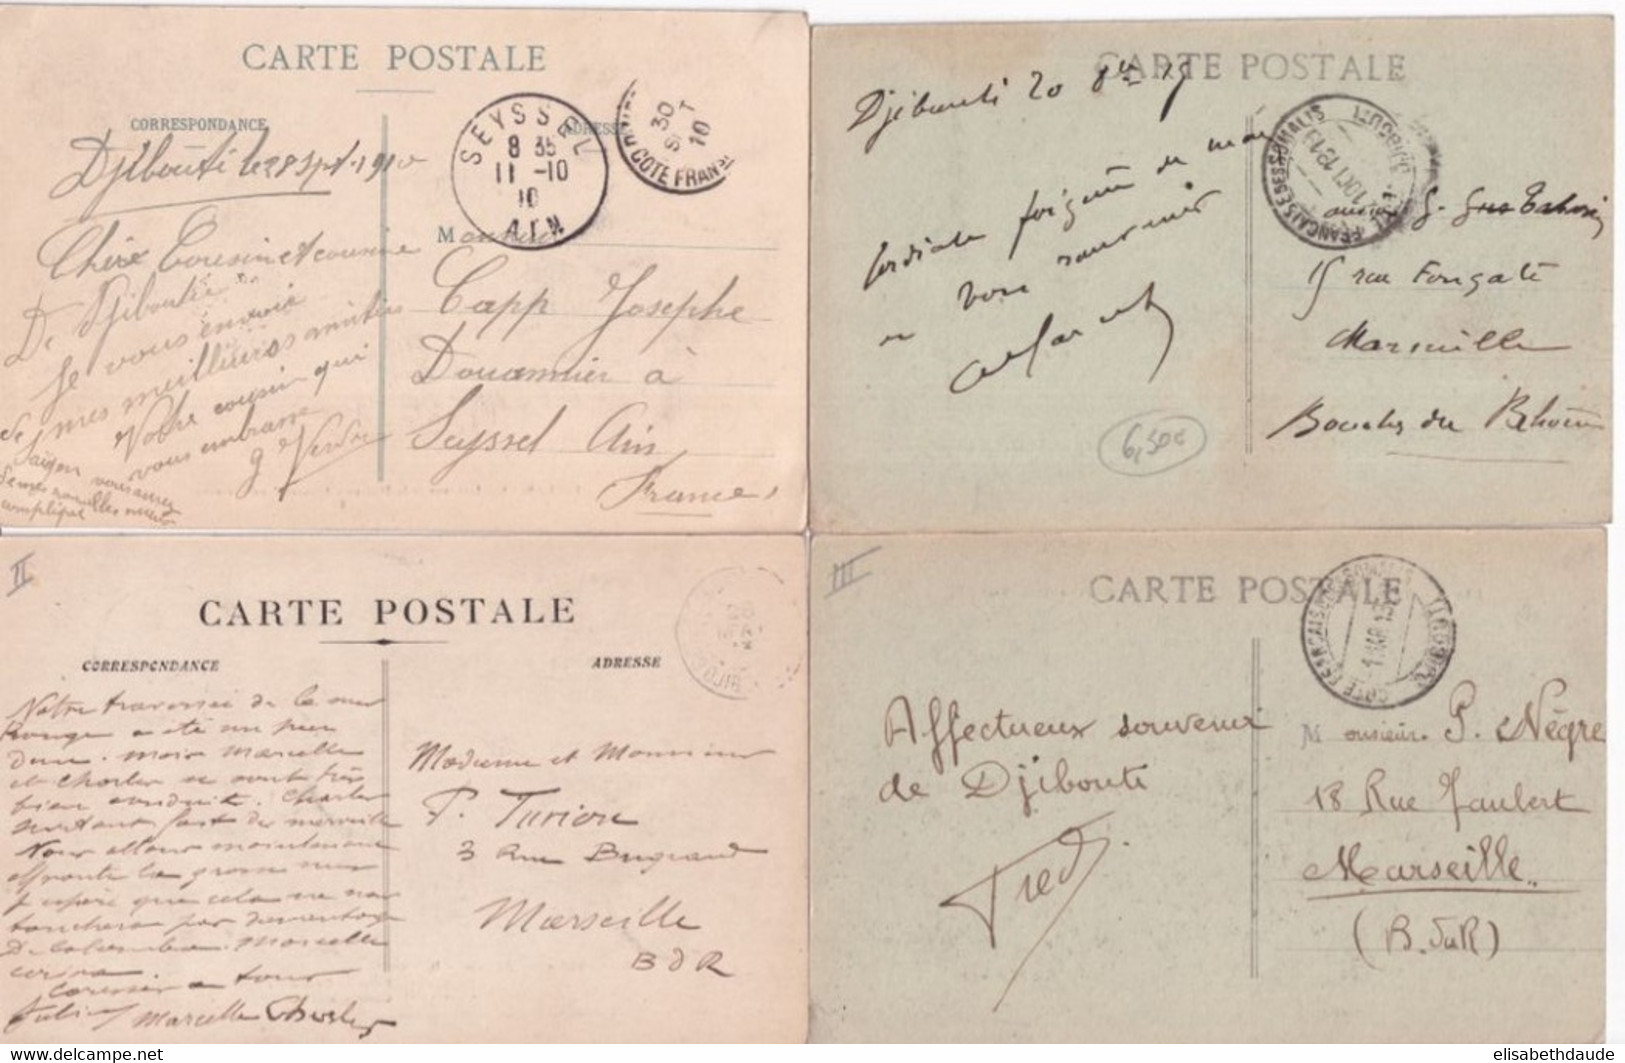 CARTE POSTALE
CORRESPONDANCE
ADRESSE
SEYSSEL
8 35
11 -10
10
AIN
30
10
COTE FRAN
Djibouti le 28 Spt. 1910
Chère Cousin et cousine
De Djibouti
je vous envoie
mes meilleures amitiés
Votre cousin qui
vous embrasse
Saigon vous aurez
Monsieur
Capp Josephe
Douannier à
Seyssel Ain
France
CARTE POSTALE
Djibouti 20
Cordiale poignée de main
bon souvenir
15 rue Fongate
Marseille
Bouches du Rhône
6,50€
II
CARTE POSTALE
CORRESPONDANCE
ADRESSE
Notre traversée de la mer
Rouge a été un peu
dure. mais Marcelle
et Charles se sont très
bien conduits. Charles
surtout fait des merveilles
Nous allons maintenant
affronter la grosse mer
J'espère que cela ne nous
touchera pas davantage
De Colombo Marcelle
Caresses a tous
Marcelle Charles
Madame et Monsieur
P. Turion
3 Rue
Marseille
B d R
III
CARTE POSTALE
COTE FRANCAISE DES SOMALIS
DJIBOUTI
1 MAR 13
Affectueux souvenir
de Djibouti
Fred
Monsieur P. Nègre
18 Rue Jaubert
Marseille
(B. du R)
delcampe.net
elisabethdaude